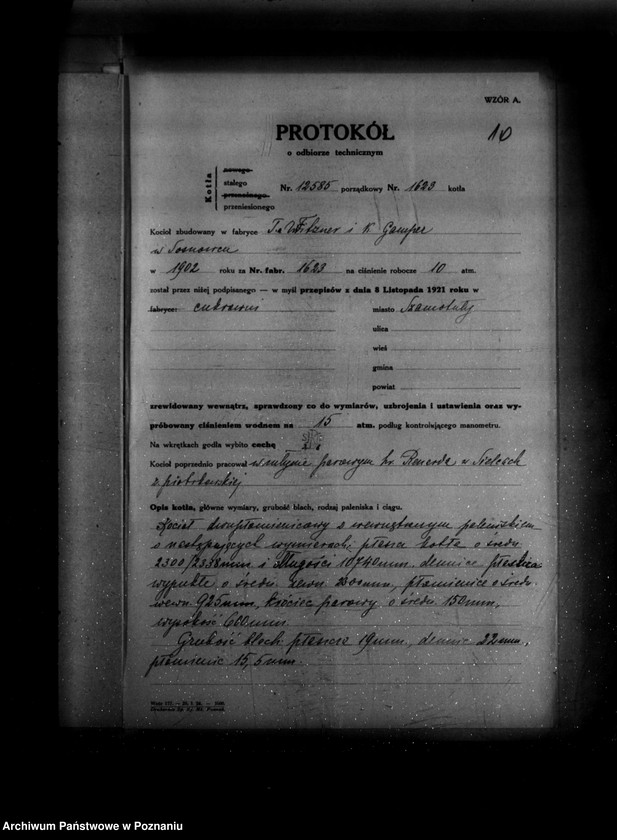 WZÓR A.
10
PROTOKÓŁ
o odbiorze technicznym
Kotła
nowego
stałego
przenośnego
przeniesionego
Nr. 12585 porządkowy Nr. 1623 kotła
Kocioł zbudowany w fabryce T-a W. Fitzner i K Gamper
w Sosnowcu
w 1902 roku za Nr. fabr. 1623 na ciśnienie robocze 10 atm.
został przez niżej podpisanego — w myśl przepisów z dnia 8 Listopada 1921 roku w
fabryce: cukrowni miasto Szamotuły
ulica
wieś
gmina
powiat
zrewidowany wewnątrz, sprawdzony co do wymiarów, uzbrojenia i ustawienia oraz wy-
próbowany ciśnieniem wodnem na 15 atm. podług kontrolującego manometru.
Na wkrętkach godła wybito cechę
Kocioł poprzednio pracował w młynie parowym hr. Renarda w Sielcach
z. piotrkowskiej
Opis kotła, główne wymiary, grubość blach, rodzaj paleniska i ciągu.
Kocioł dwupłomienicowy z wewnętrznym paleniskiem
o następujących wymiarach: płaszcz kotła o średn.
2300/2338mm i długości 10740mm. dennice płasko
wypukłe o średn. zewn 2300mm, płomienice o średn.
wewn. 925mm, króciec parowy o średn. 150mm,
wysokość 600mm.
Grubość blach płaszcza 19mm, dennic 22mm,
płomienic 15,5mm.
Archiwum Państwowe w Poznaniu